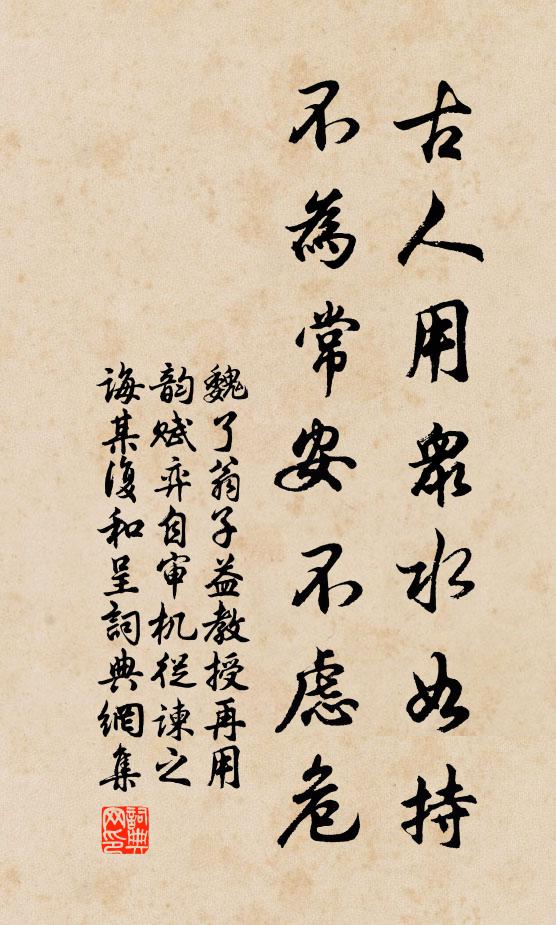 古人用衆水如持
不為常安不慮危
魏了翁子益教授再用
韵赋弈自审机從諫之
诲某復和呈詞典網集
詞典网印